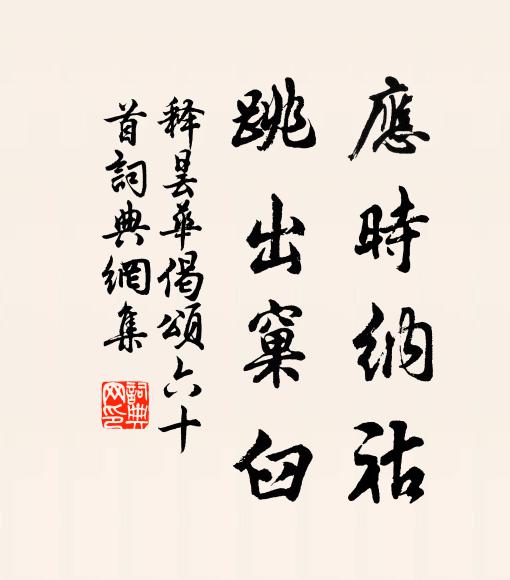 應時納祜
跳出窠臼
釋曇華偈頌六十
首詞典網集
詞典
网印